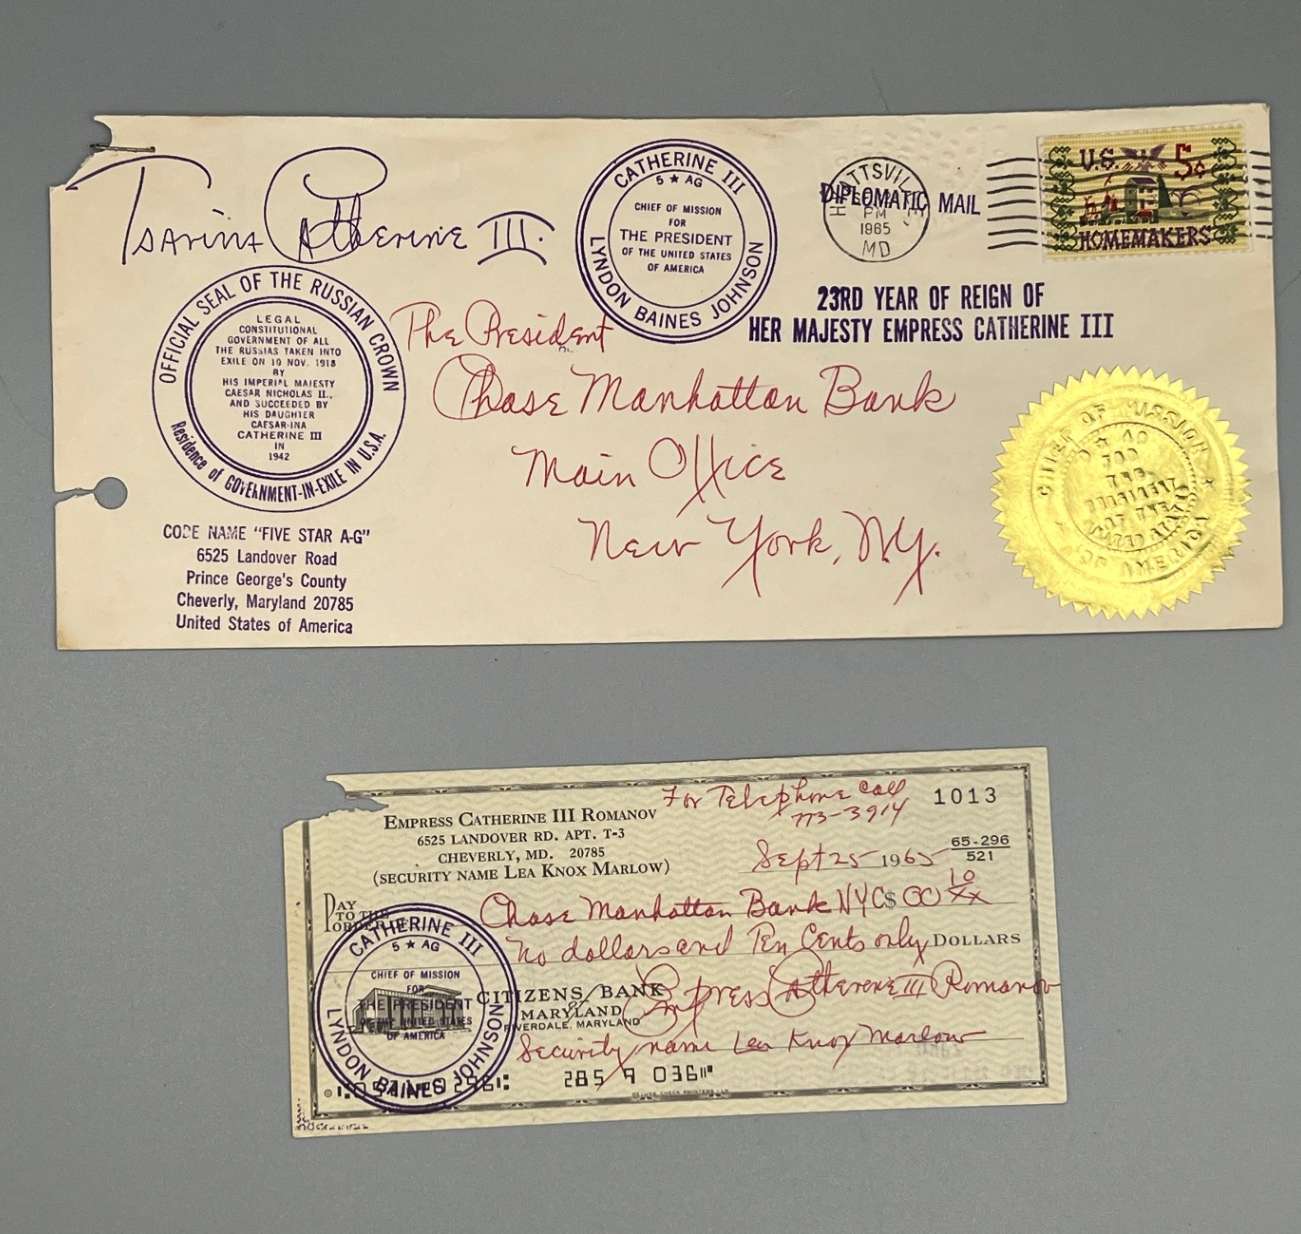 Tsarina Catherine III.
CATHERINE III
5 ★ AG
CHIEF OF MISSION
FOR
THE PRESIDENT
OF THE UNITED STATES
OF AMERICA
LYNDON BAINES JOHNSON
DIPLOMATIC MAIL
PM
1965
MD
U.S. 5¢
HOMEMAKERS
23RD YEAR OF REIGN OF
HER MAJESTY EMPRESS CATHERINE III
OFFICIAL SEAL OF THE RUSSIAN CROWN
LEGAL
CONSTITUTIONAL
GOVERNMENT OF ALL
THE RUSSIAS TAKEN INTO
EXILE ON 10 NOV. 1918
BY
HIS IMPERIAL MAJESTY
CAESAR NICHOLAS II.,
AND SUCCEEDED BY
HIS DAUGHTER
CAESAR-INA
CATHERINE III
IN
1942
Residence of GOVERNMENT-IN-EXILE IN U.S.A.
The President
Chase Manhattan Bank
Main Office
New York, N.Y.
CHIEF OF MISSION
5 ★ AG
FOR
THE
PRESIDENT
OF THE
UNITED STATES
OF AMERICA
CODE NAME "FIVE STAR A-G"
6525 Landover Road
Prince George's County
Cheverly, Maryland 20785
United States of America
For Telephone Call
773-3914
1013
EMPRESS CATHERINE III ROMANOV
6525 LANDOVER RD. APT. T-3
CHEVERLY, MD. 20785
(SECURITY NAME LEA KNOX MARLOW)
Sept 25 1965
65-296
521
PAY
TO THE
ORDER OF
Chase Manhattan Bank NYC $ 00 10/xx
No dollars and Ten Cents only DOLLARS
CATHERINE III
5 ★ AG
CHIEF OF MISSION
FOR
THE PRESIDENT
OF THE UNITED STATES
OF AMERICA
LYNDON BAINES JOHNSON
CITIZENS BANK
OF
MARYLAND
RIVERDALE, MARYLAND
Empress Catherine III Romanov
Security name Lea Knox Marlow
285 9 036